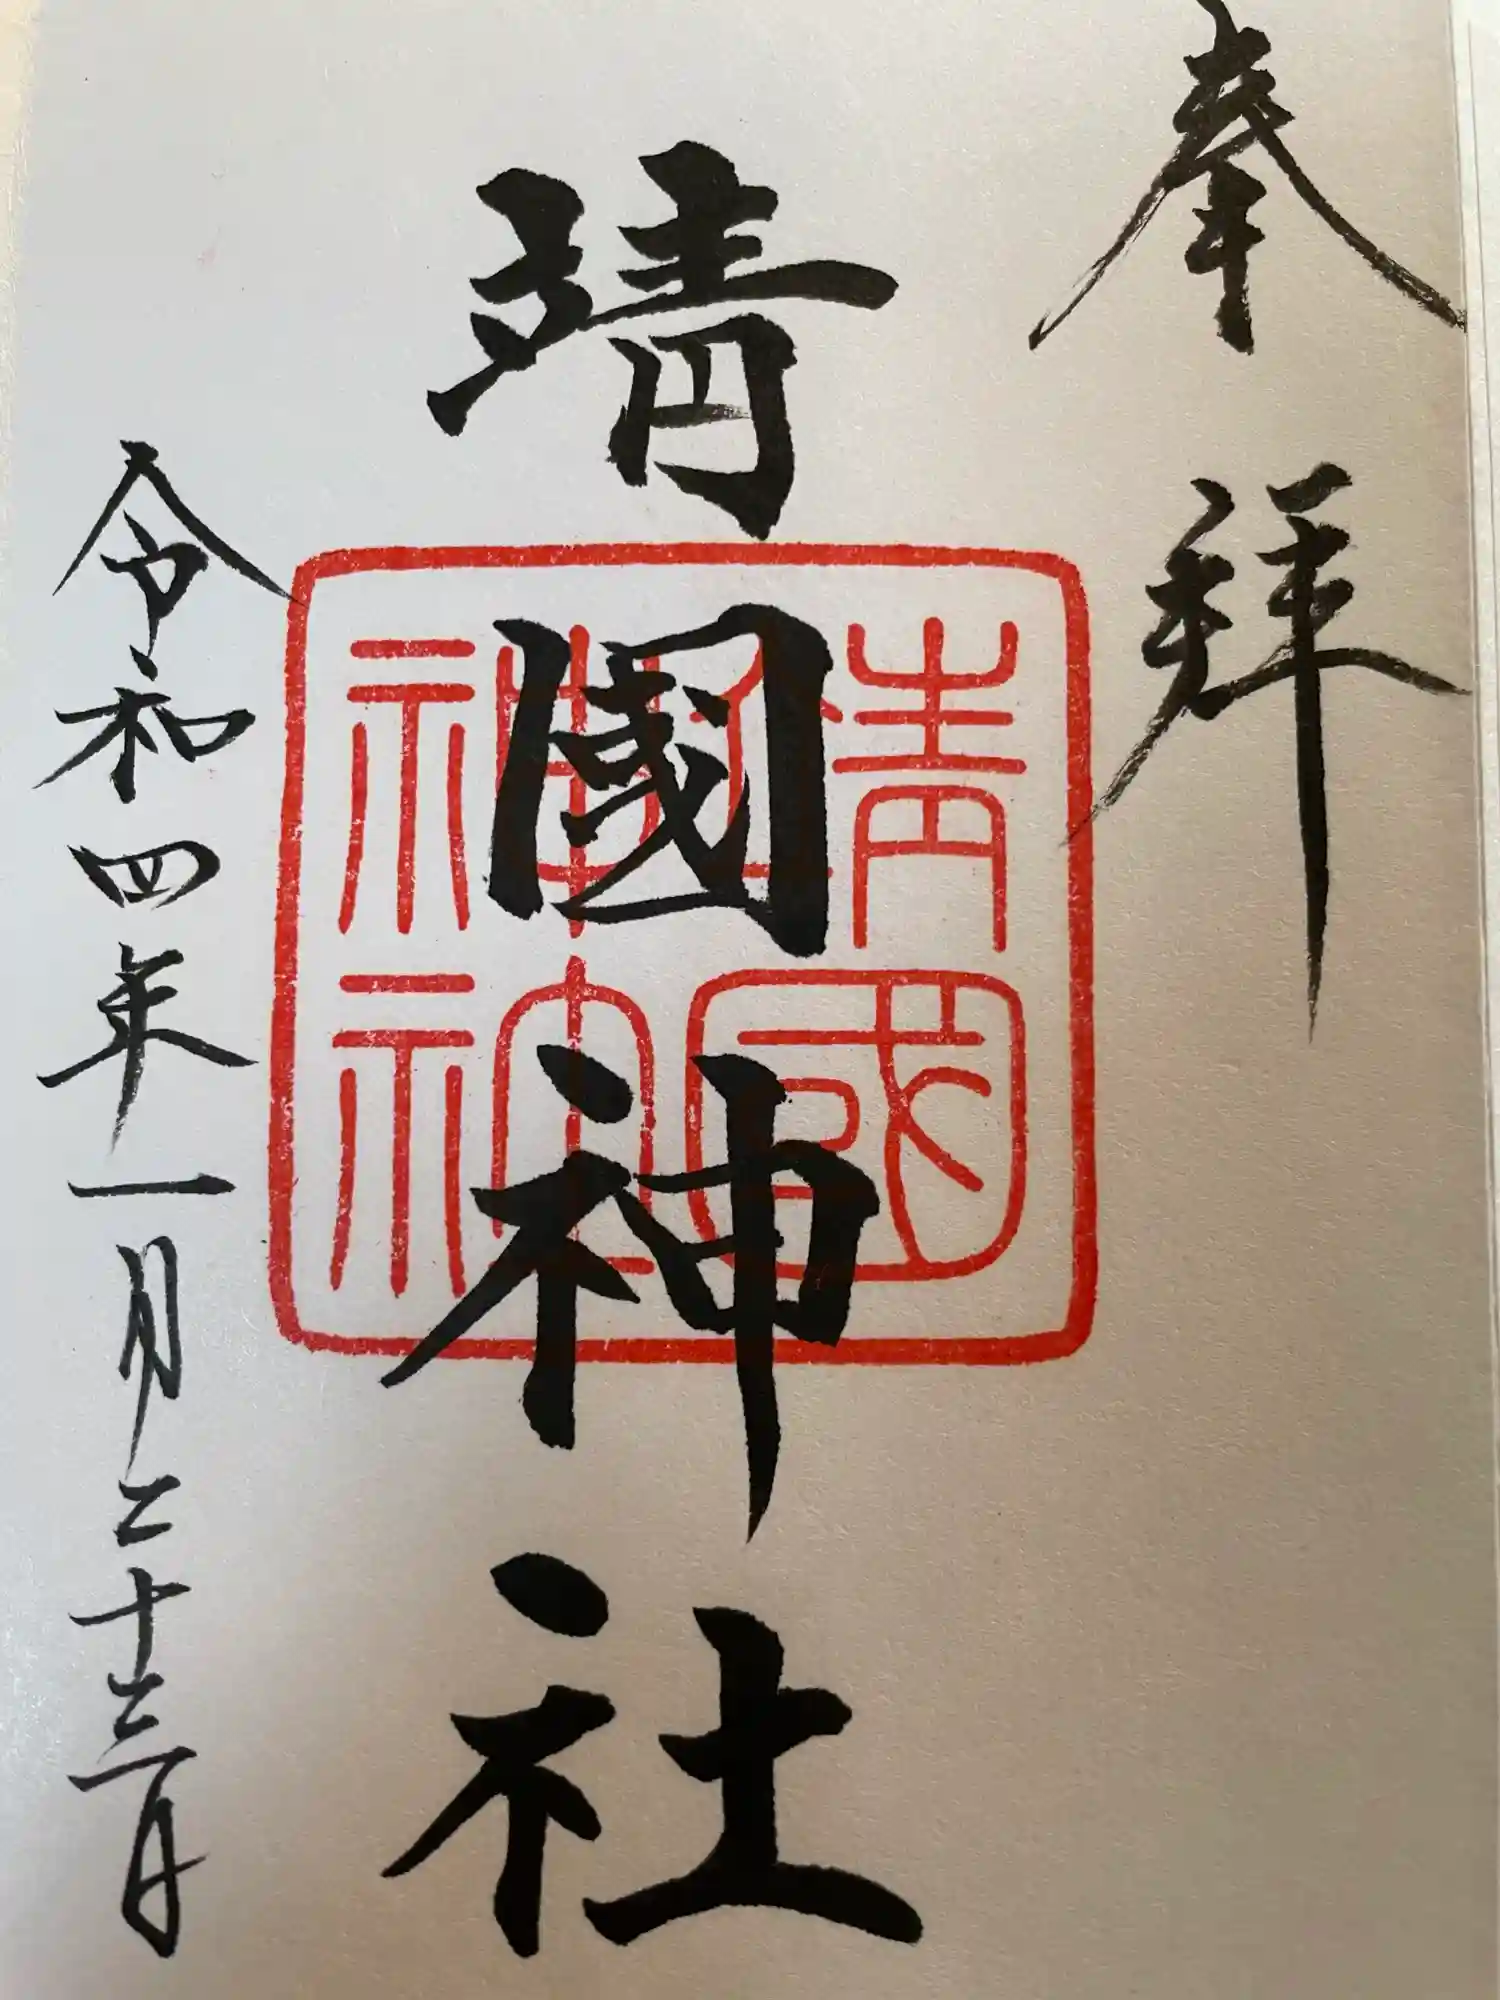 奉拝
靖國神社
靖國神社
令和四年一月二十三日